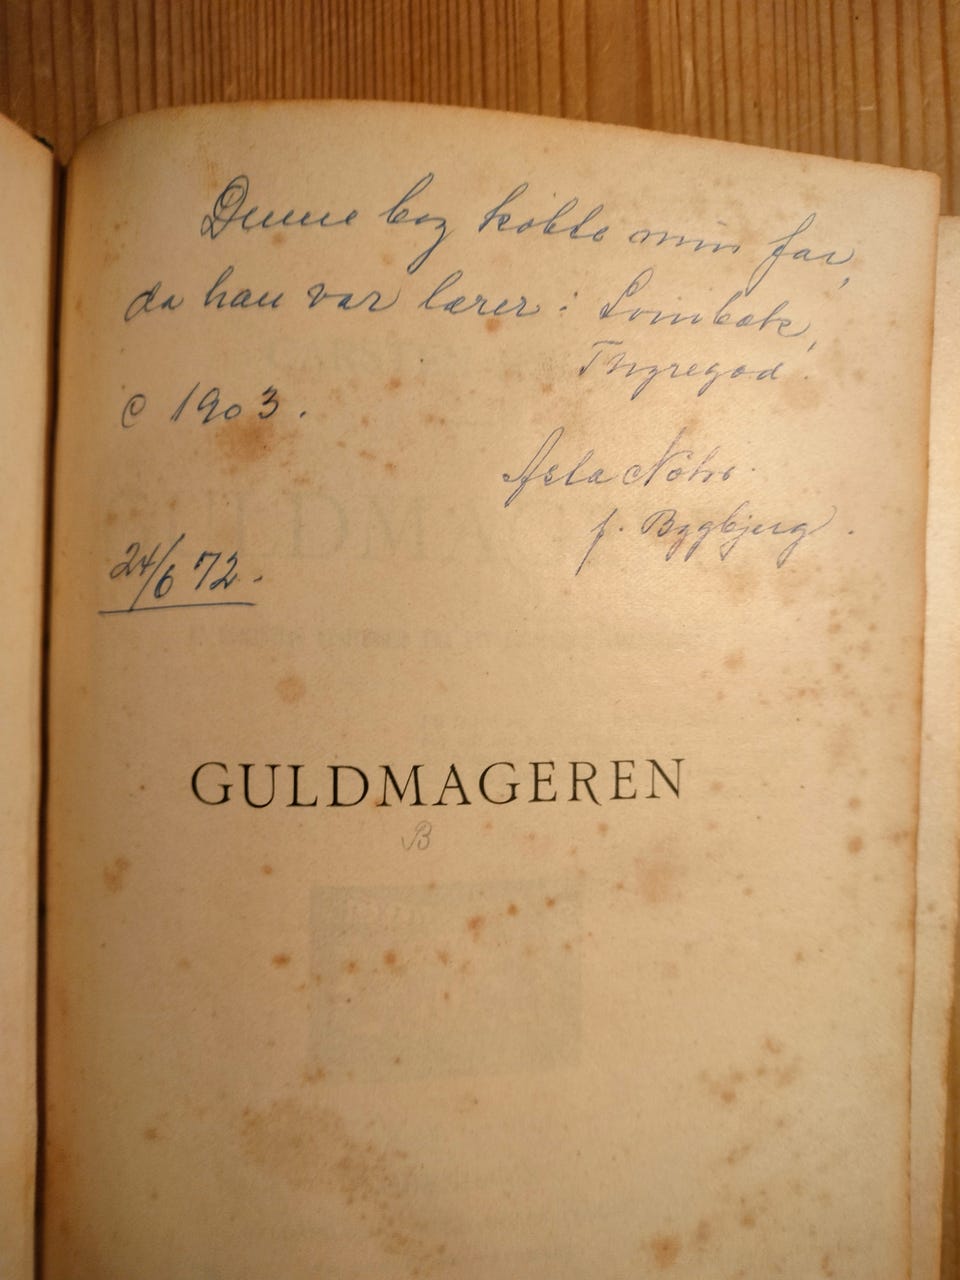 Denne bog købte min far,
da han var lærer i Svinbæk,
Thyregod.
C 1903.
Asta Nohr
f. Bygbjerg.
24/6 72.
GULDMAGEREN
B